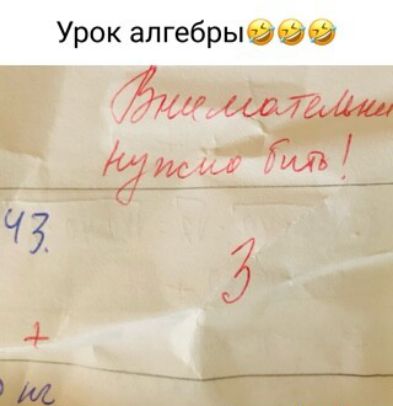 Урок алгебры🤣🤣🤣
Внимательне
нужно бить!
43.
3
+